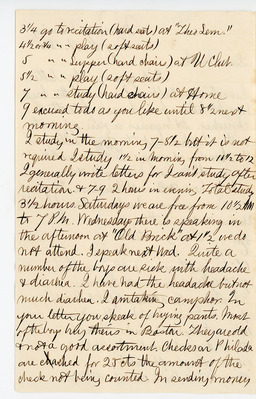 3 1/4 go to recitation (hard seats) at "Theo Sem."
4 1/2 or " " play (soft seats)
5 " " Supper (hard chair) at U Club
5 1/2 " " play (soft seats)
7 " " study (hard chairs) at Home
9 excused to do as you like until 8 1/2 next
morning
I study in the morning 7-8 1/2 but it is not
required I study 1 1/2 in morning from 10 1/2 to 12
I generally write letters for I can't study after
recitation. & 7-9 2 hours in evening Total study
3 1/2 hours Saturdays we are free from 10 1/2 AM
to 7 P.M. Wednesday there is speaking in
the afternoon at "Old Brick" at 1 1/2 we do
not attend. I speak next Wed. Quite a
number of the boys are sick with headache
& diarhea. I have had the headache but not
much diarhea. I am taking camphor. In
your letter you speak of buying pants. Most
of the boys buy theirs in Boston They are old
& not a good assortment. Checks on Philada
are cashed for 25 cts the amount of the
check not being counted. In sending money